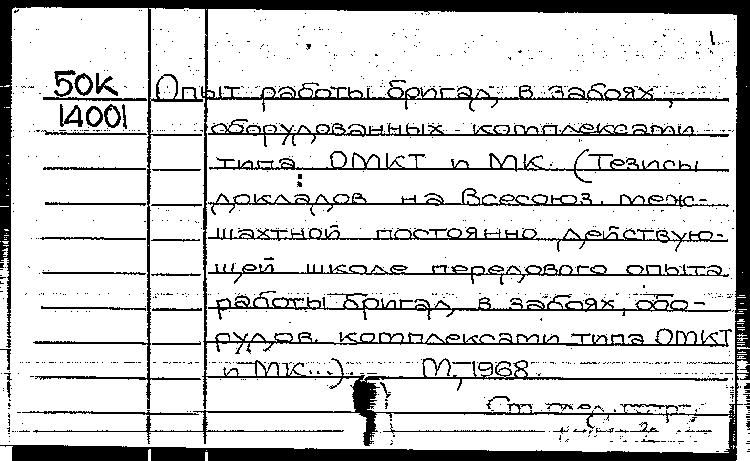 1
50К Опыт работы бригад, в забоях,
14001 оборудованных комплексами
типа ОМКТ и МК. (Тезисы
докладов на Всесоюз. меж-
шахтной постоянно действую-
щей школе передового опыта
работы бригад, в забоях, обо-
рудов. комплексами типа ОМКТ
и МК...). М., 1968.
См. след.